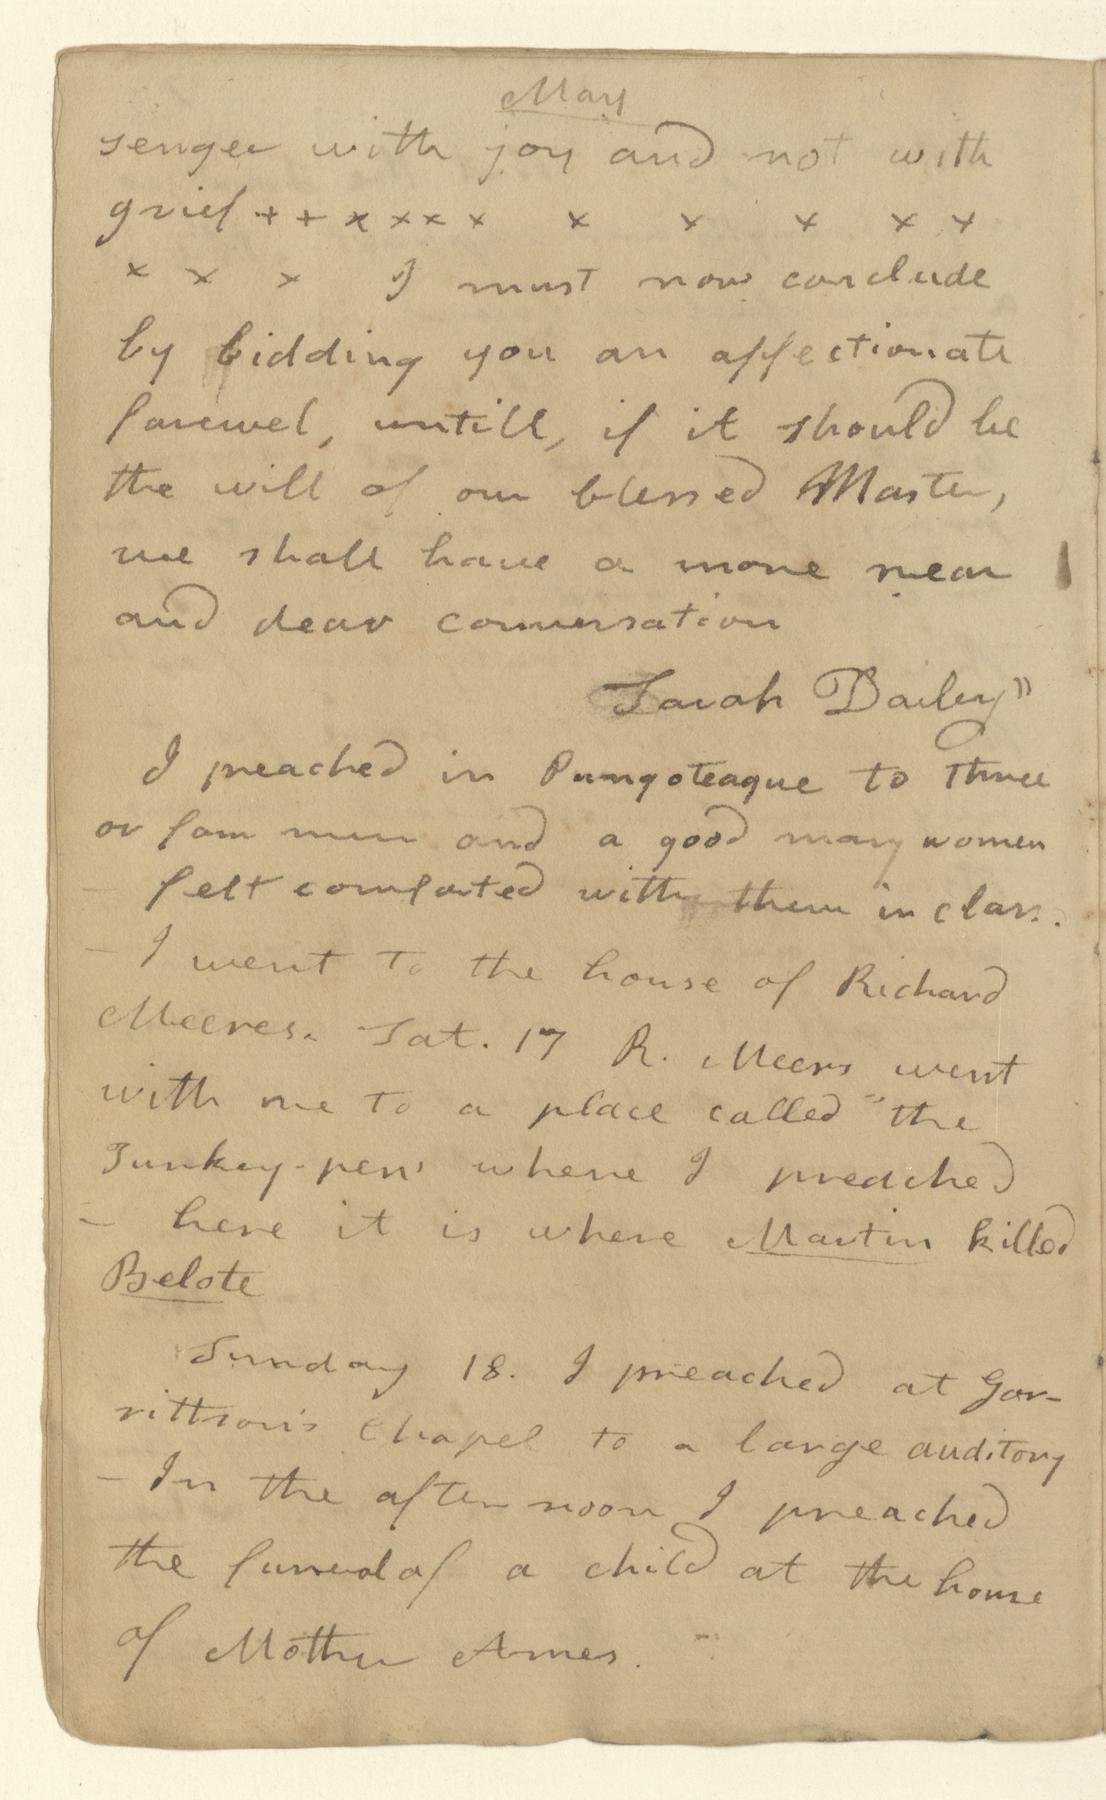 May
senger with joy and not with
grief + + x x x x x x x x x
x x x I must now conclude
by bidding you an affectionate
farewel, untill, if it should be
the will of our blessed Master,
we shall have a more near
and dear conversation
Sarah Bailey"
I preached in Pungoteague to three
or four men and a good many women
- felt comforted with them in class.
- I went to the house of Richard
Meeres. Sat. 17 R. Meers went
with me to a place called "the
Turkey-pen" where I preached
- here it is where Martin killed
Belote
Sunday 18. I preached at Gar-
rittson's Chapel to a large auditory
- In the afternoon I preached
the funeral of a child at the house
of Mother Ames.